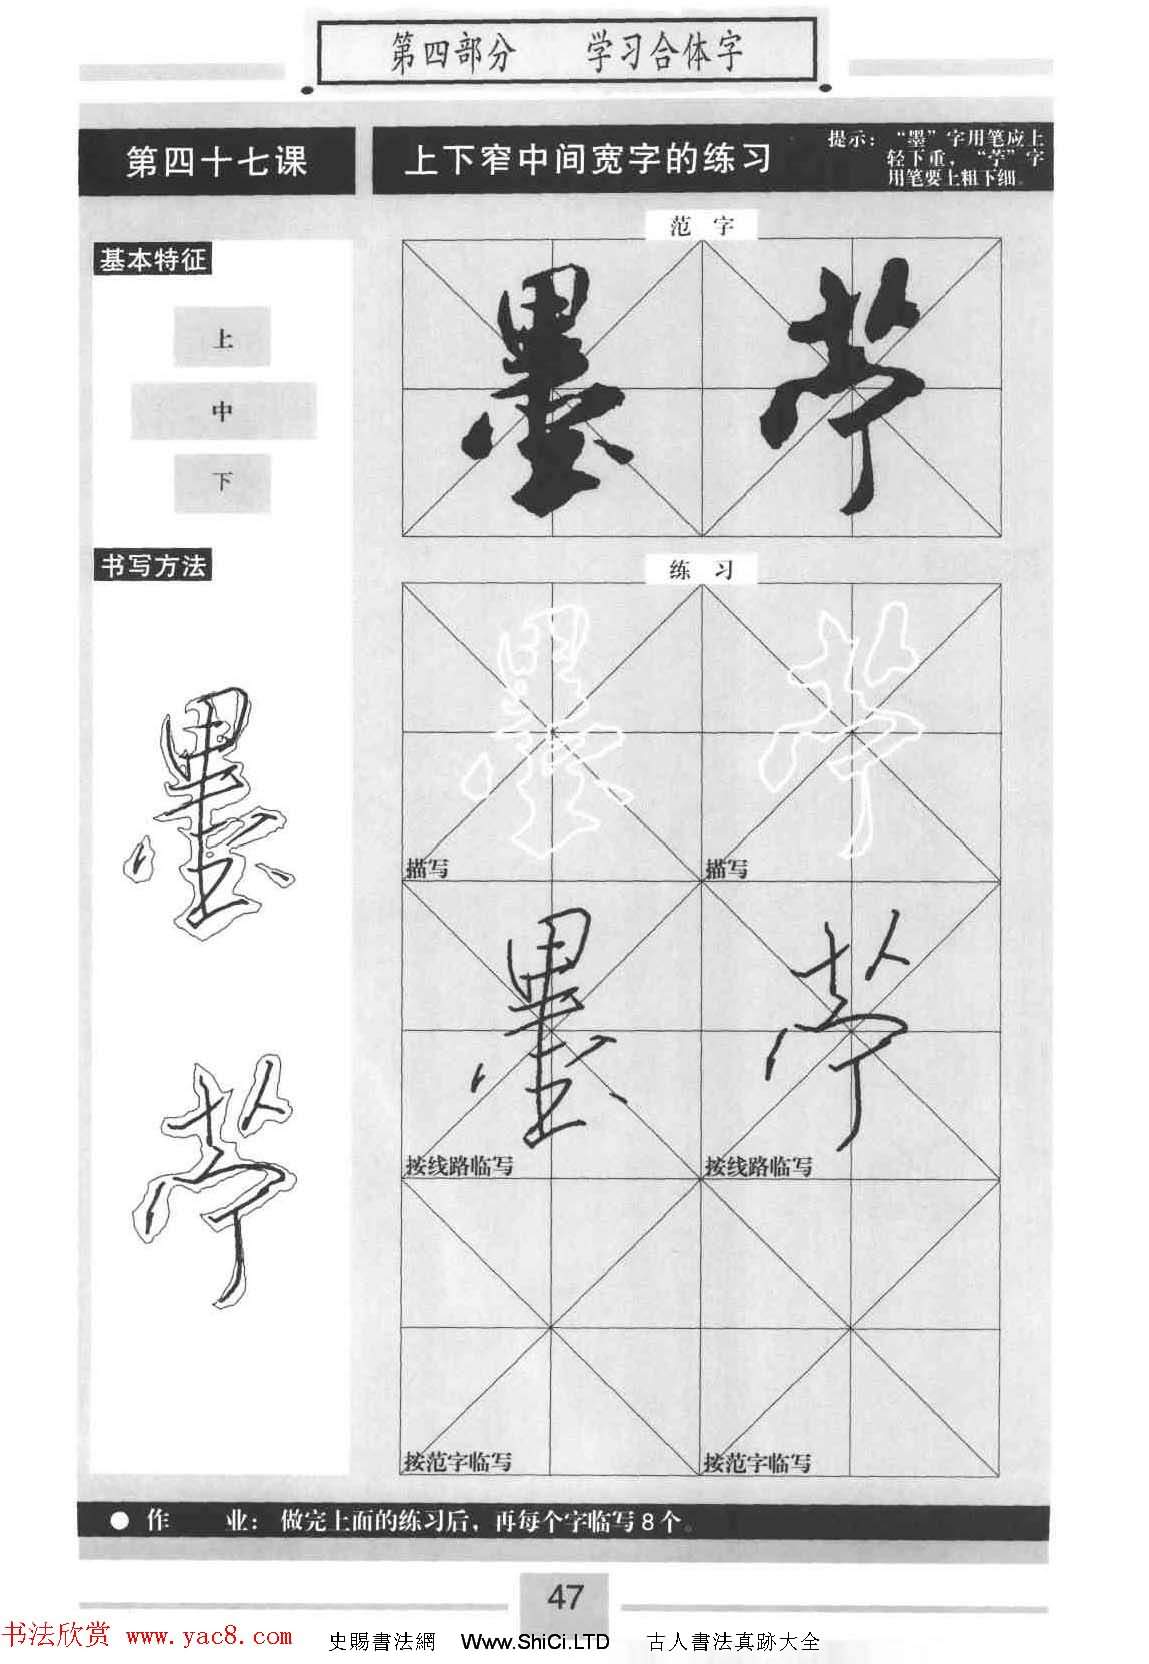 第四部分 学习合体字
第四十七课
上下窄中间宽字的练习
提示：“墨”字用笔应上
轻下重，“苧”字
用笔要上粗下细。
基本特征
上
中
下
书写方法
墨
苧
范 字
墨 苧
练 习
墨 苧
描写 描写
墨 苧
按线路临写 按线路临写
按范字临写 按范字临写
● 作 业：做完上面的练习后，再每个字临写8个。
47
书法欣赏 www.yac8.com
史賜書法網 Www.ShiCi.LTD 古人書法真跡大全